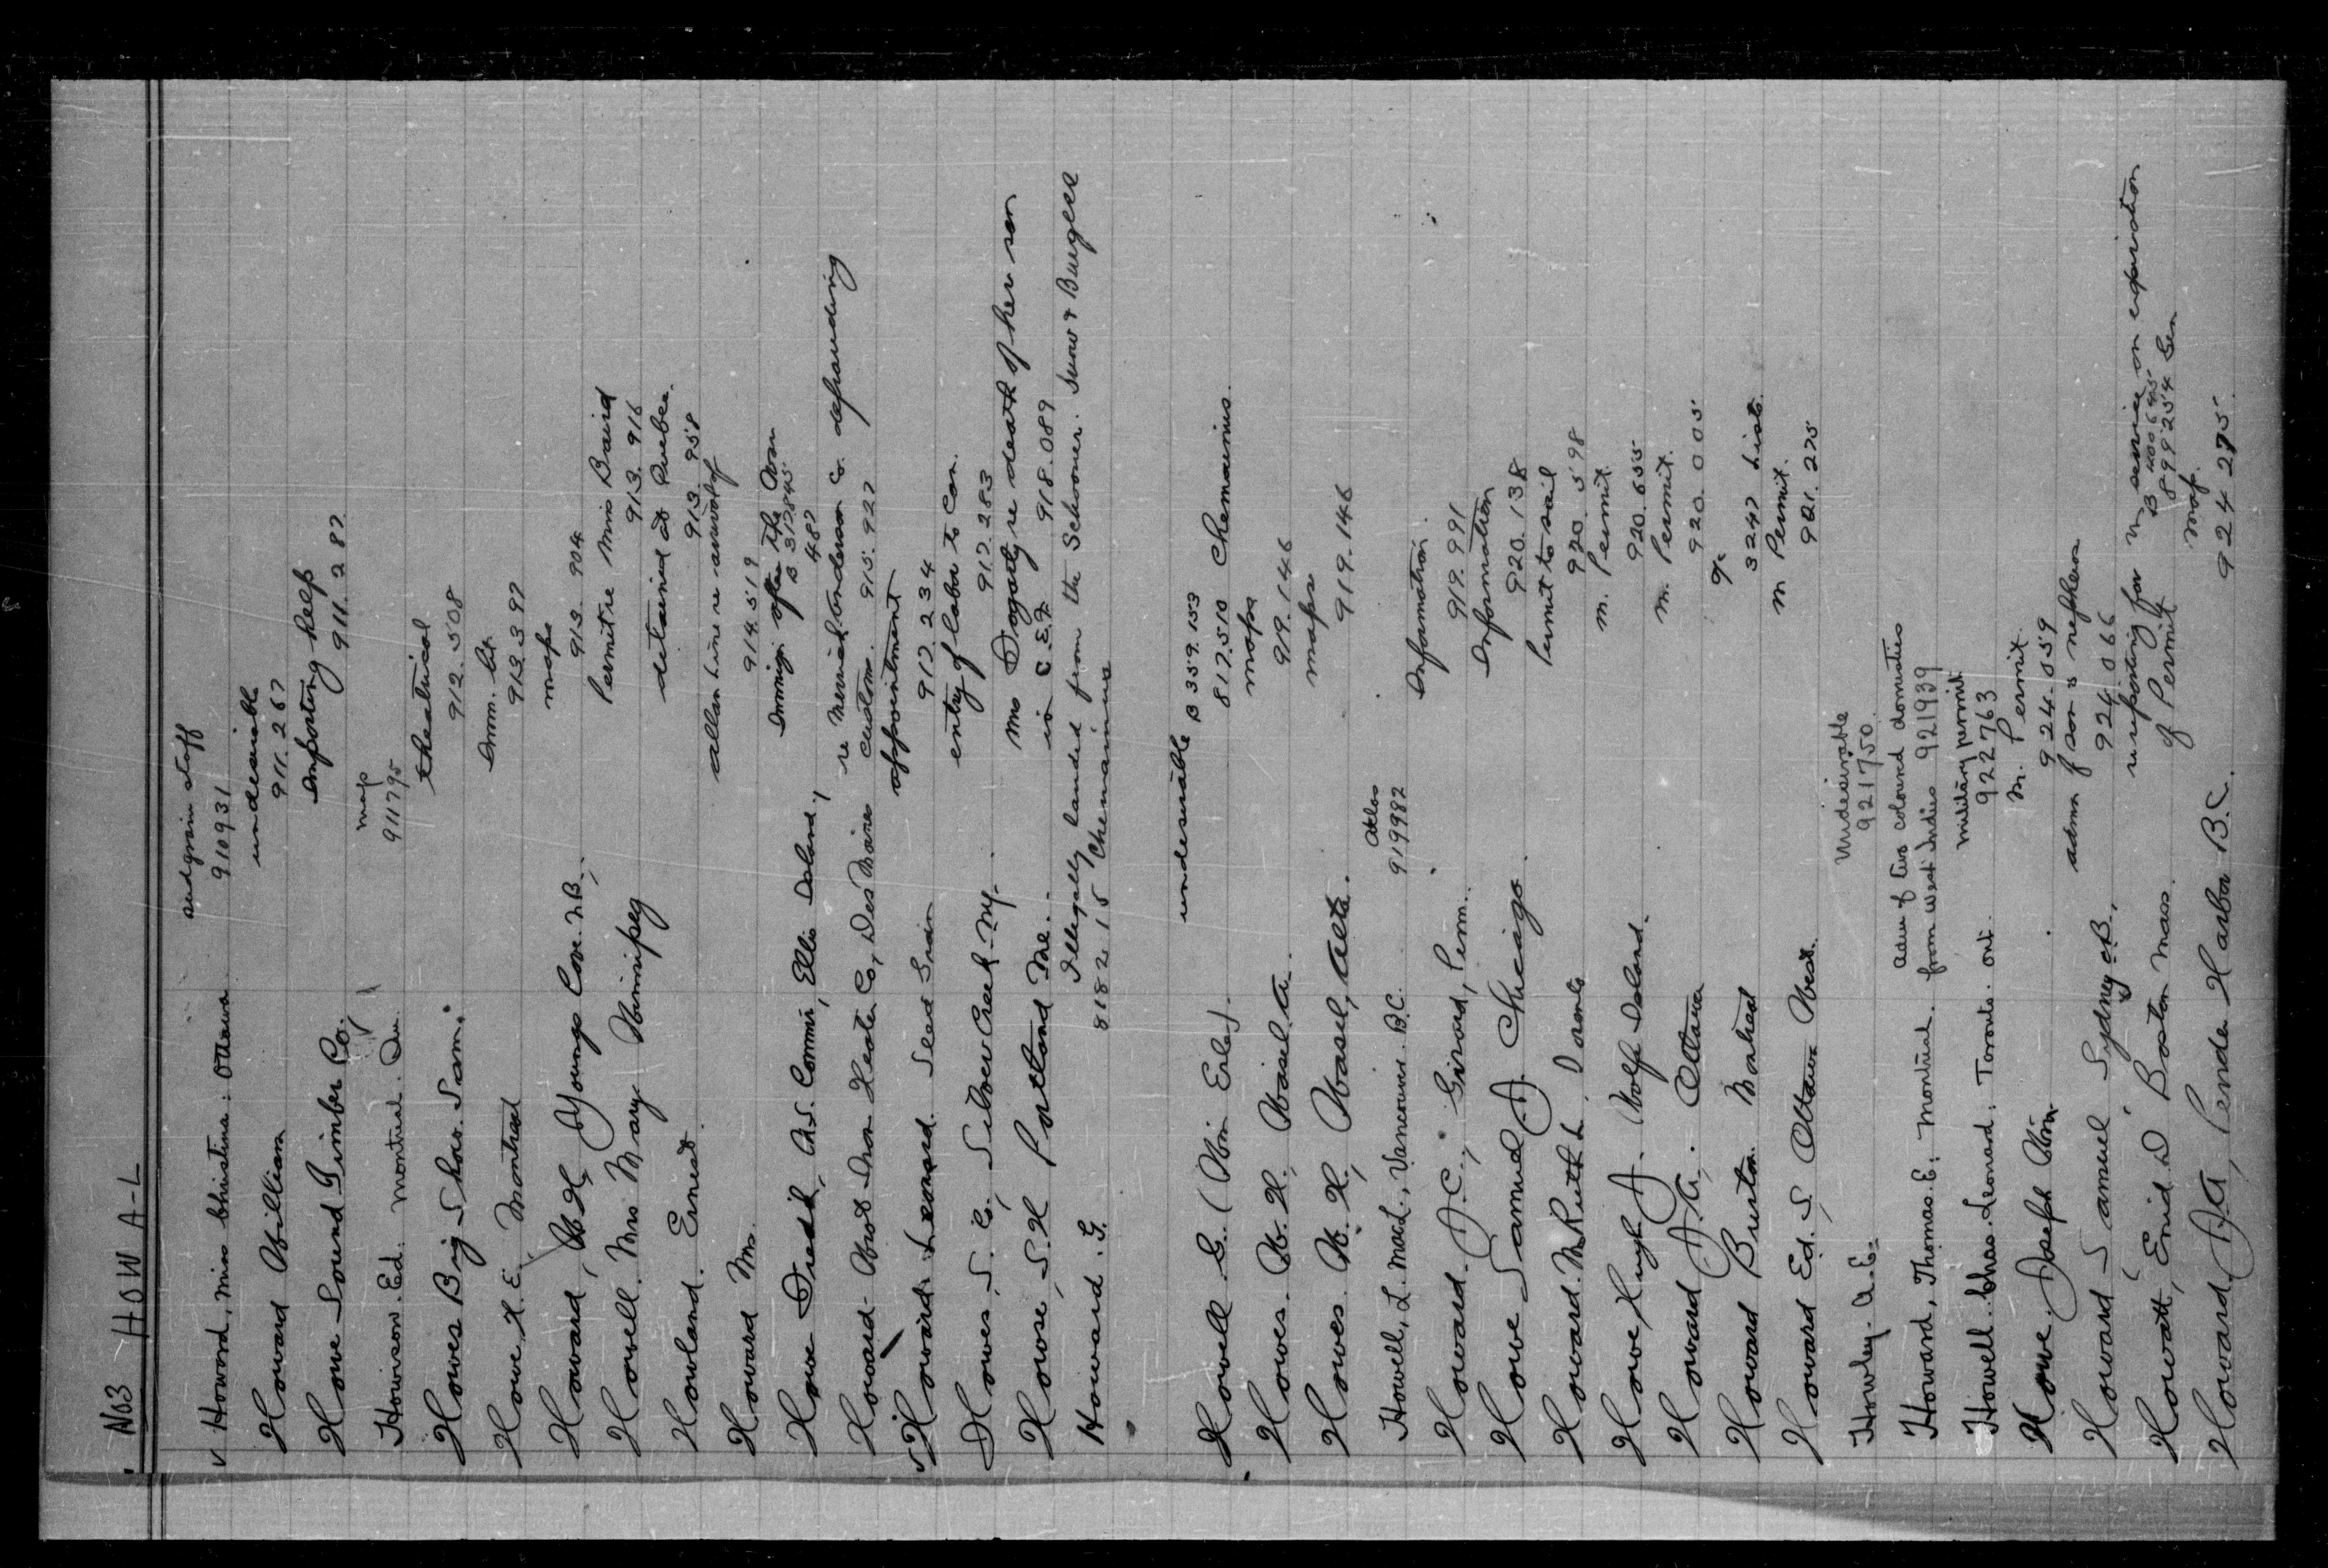 No3 HOW A-L
v Howard, Miss Christina. Ottawa
911931
Howard William undesirable
911.267
Howe Sound Timber Co. Importing help
911.287
Howison. Ed. Montreal. Que map
911795
Howes Big Show. Sam. theatrical
912.508
Howe H. E. Montreal Imm. lit.
913.397
Howard, W.H, Youngs Cove. N.B., maps
913.904
Howell. Mrs Mary Winnipeg Permit re Miss Baird
913.916
Howland. Ernest. detained at Quebec.
913.958
Howard Mr. Allan Line re arrival of
914.519
Howe Fred K, Ass. Commr, Ellis Island,
B 317845
487
Howard- Iron Heater Co, Des Moines re Merrick Anderson Co. defrauding
customs. 915.922
Howard. Leonard. appointment
917.234
Howes, S. C., Silver Creek N.Y. entry of labor to Can.
917.283
Howse, S.H Portland Me. Mrs Dogarty re death of her son
in C.E.F. 918.089
Howard. G. Illegally landed from the Schooner. Snow & Burgess
818215 Chemainus
undesirable B 359.153
Howell G. (Wm Erle). 817.510 Chemainus.
Howes. W. H., maps
919.146
Howes. W. H., Alta. maps
919.146
Howell, L. MacL., Vancouver. B.C. atlas
919982
Howard. J. C., Girard, Penn. Information.
919.991
Howe Samuel J. Chicago. Information
920.138
Howard. M Ruth L, Toronto Permit to sail
920.598
Howe Hugh J. Wolfe Island. M. Permit.
920.655
Howard J. A. Ottawa M. Permit.
920.005
Howard Burton Montreal
3247 Lists.
Howard Ed. S. Ottawa West. M Permit.
921.275
Howley. A. E. Undesirable
921750.
Howard, Thomas. E. Montreal. adm of two coloured domestics
from West Indies 921939
Howell. Chas. Leonard. Toronto. Ont. military permit
922763
Howe. Joseph Wm. M. Permit.
924.059
Howard Samuel Sydney C.B., adm of son & nephew
924.066
Howatt, Enid D Boston Mass. re reporting for M service on expiration
of Permit
B 400645
899254 Gen
Howard J.A, Pender Harbor B.C. map.
924 275.